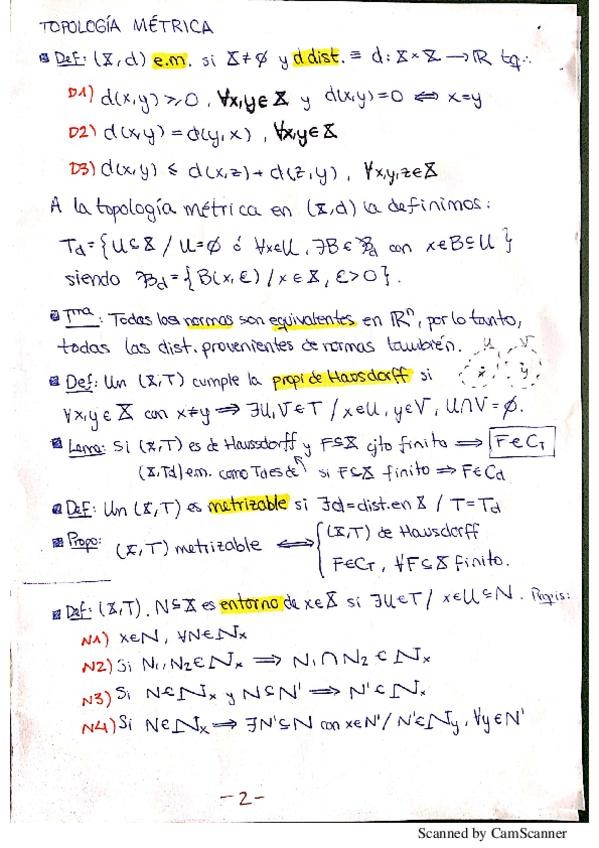 TOPOLOGÍA MÉTRICA
Def: (X,d) e.m. si X≠∅ y d dist. ≡ d: X×X → ℝ tq:
D1) d(x,y) ≥ 0, ∀x,y∈X y d(x,y)=0 ⟺ x=y
D2) d(x,y) = d(y,x), ∀x,y∈X
D3) d(x,y) ≤ d(x,z)+d(z,y), ∀x,y,z∈X
A la topología métrica en (X,d) la definimos:
Td={U⊆X / U=∅ ó ∀x∈U, ∃B∈ℬd con x∈B⊆U}
siendo ℬd={B(x,ε) / x∈X, ε>0}.
Tma: Todas las normas son equivalentes en ℝⁿ, por lo tanto,
todas las dist. provenientes de normas también.
U V
x y
Def: Un (X,T) cumple la propi de Hausdorff si
∀x,y∈X con x≠y ⟹ ∃U,V∈T / x∈U, y∈V, U∩V=∅.
Lema: Si (X,T) es de Haussdorff y F⊆X cjto finito ⟹ F∈C_T
(X,Td) e.m. como Td es de si F⊆X finito ⟹ F∈Cd
Def: Un (X,T) es metrizable si ∃d=dist. en X / T=Td
Propo: (X,T) metrizable ⟺ { (X,T) de Hausdorff
F∈C_T, ∀F⊆X finito.
Def: (X,T). N⊆X es entorno de x∈X si ∃U∈T / x∈U⊆N. Propis:
N1) x∈N, ∀N∈Nx
N2) Si N₁,N₂∈Nx ⟹ N₁∩N₂∈Nx
N3) Si N∈Nx y N⊆N' ⟹ N'∈Nx
N4) Si N∈Nx ⟹ ∃N'⊆N con x∈N' / N'∈Ny, ∀y∈N'
-2-
Scanned by CamScanner